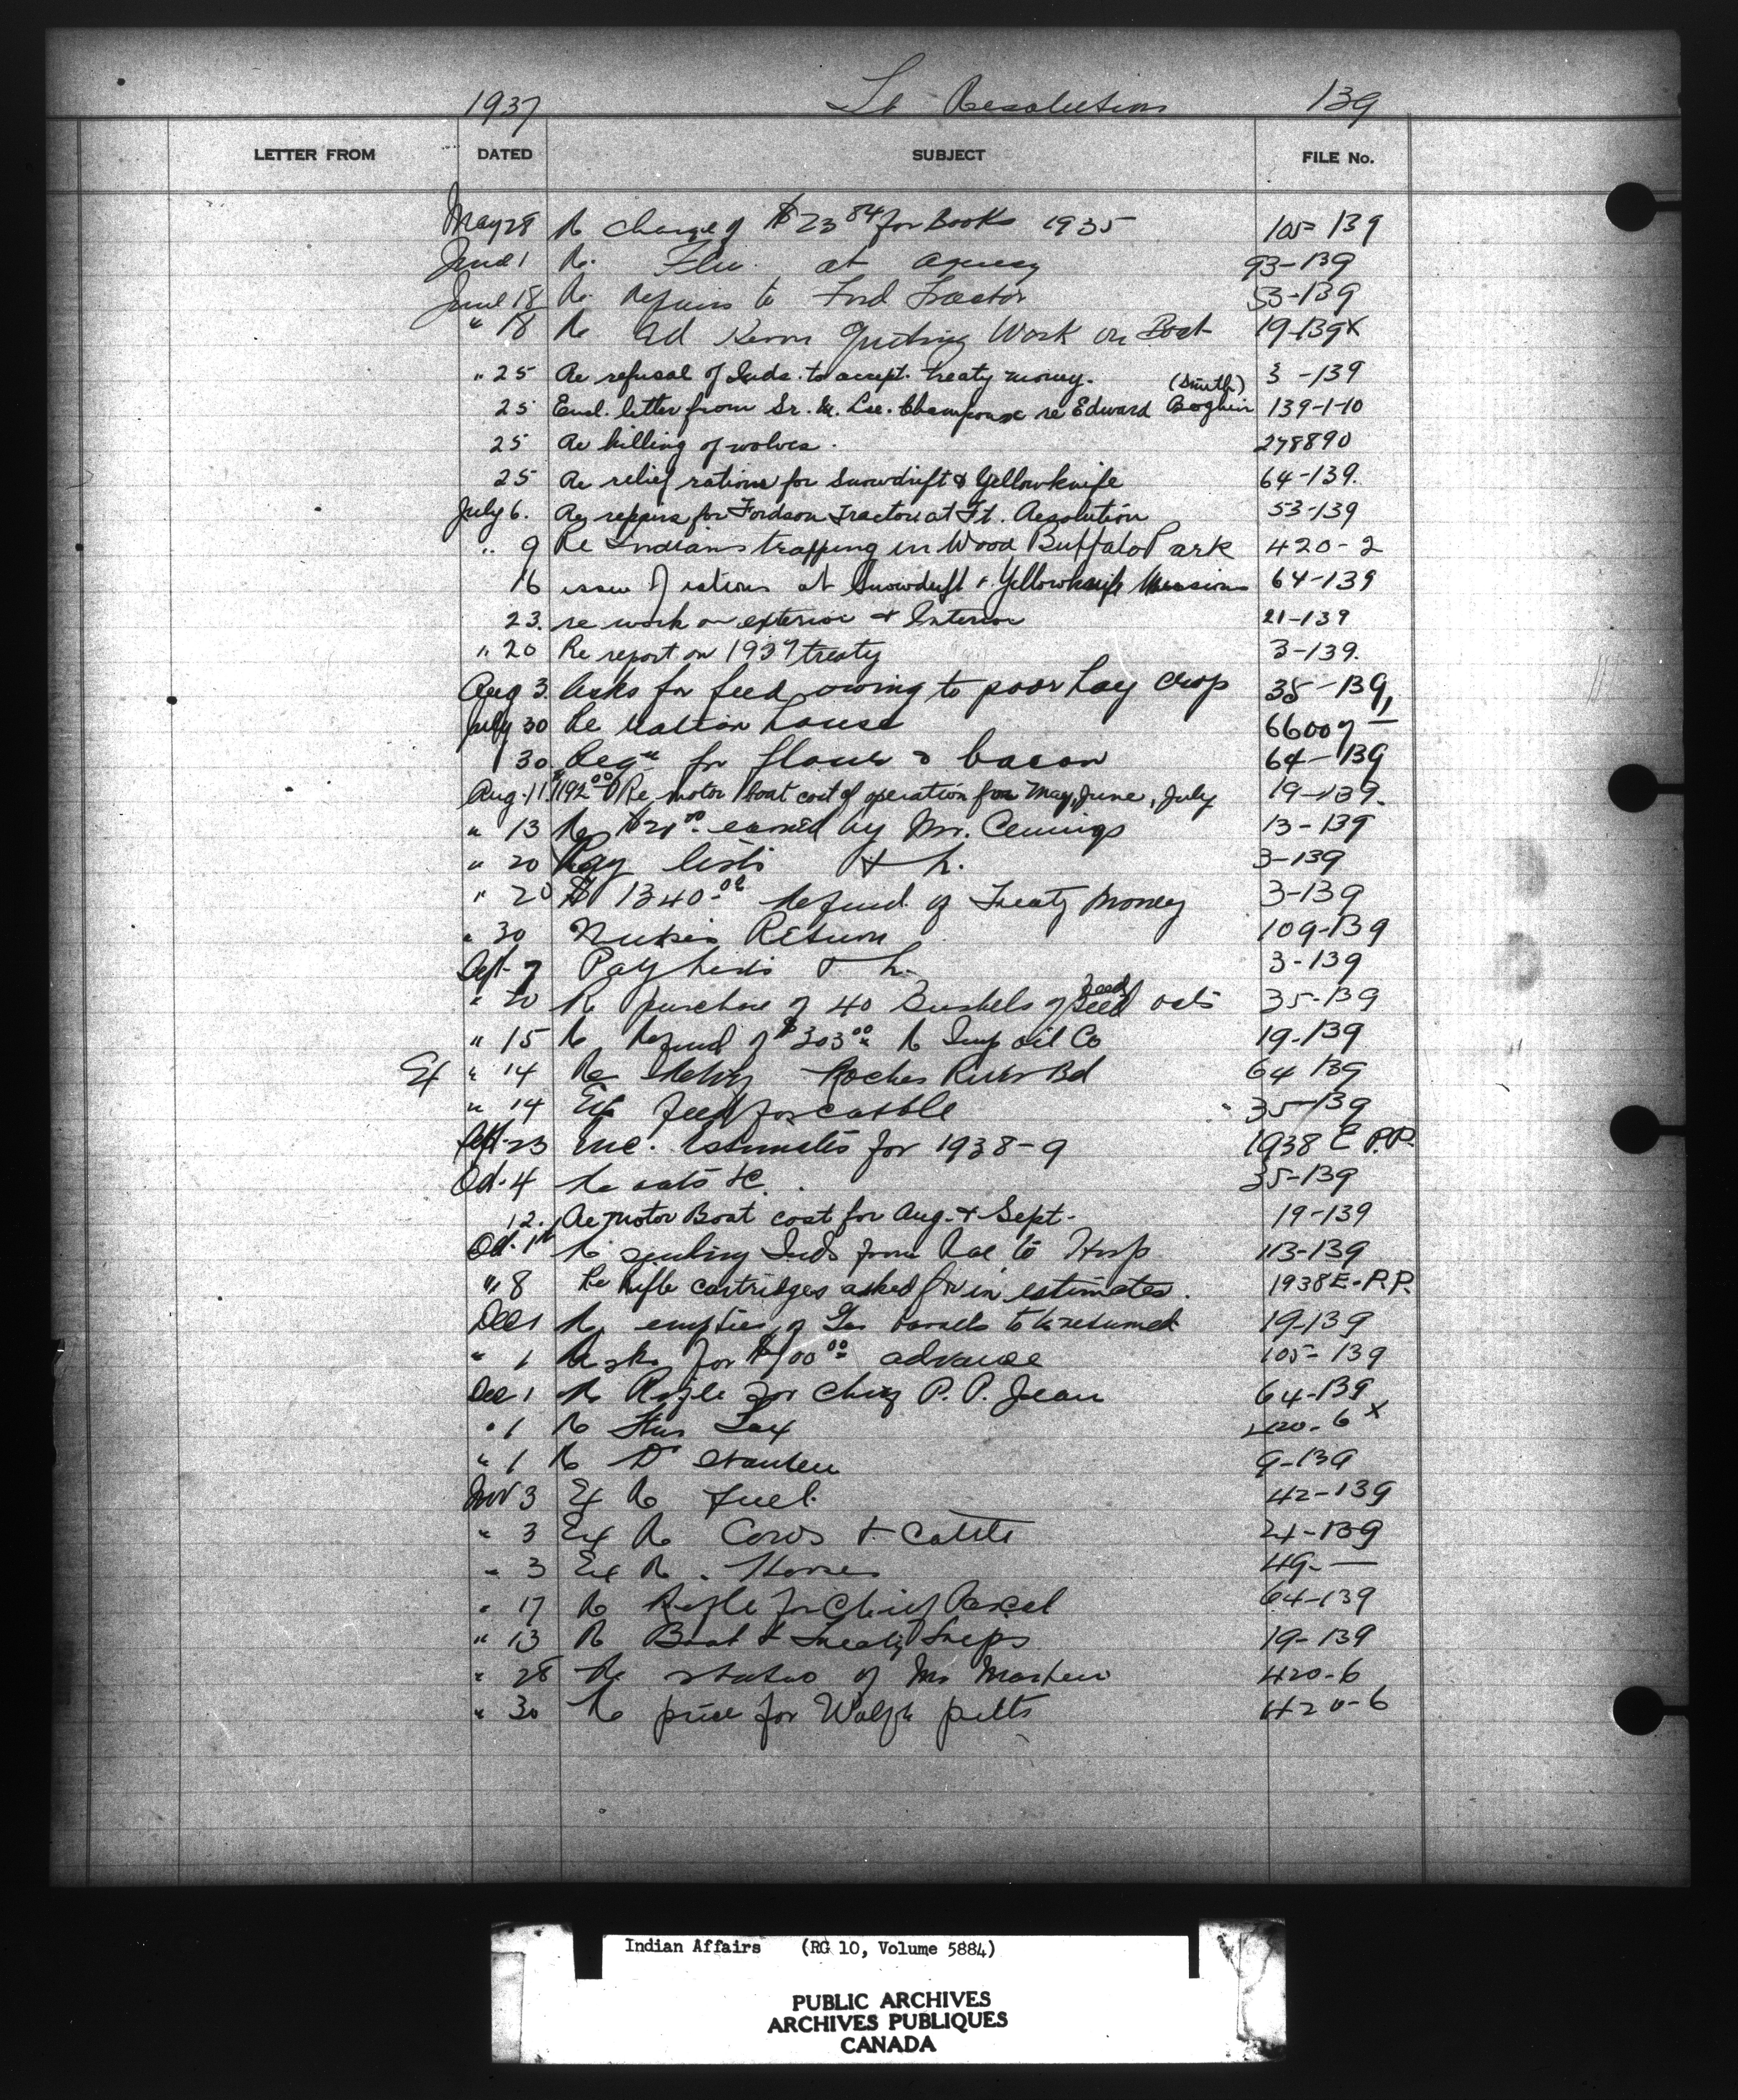 1937 Ft Resolution 139
LETTER FROM DATED SUBJECT FILE No.
May 28 Re charge of $23 84 for Books 1935 105-139
June 1 Re. Flu. at agency 93-139
June 18 Re. repairs to Ford Tractor 53-139
" 18 Re Ed Kerr quiting Work on Boat 19-139x
" 25 Re refusal of Inds. to accept. treaty money. 3-139
25 Encl. letter from Sr. M. re Edward (Smith) 139-1-10
25 Re killing of wolves. 278890
25 Re relief rations for Snowdrift & Yellowknife 64-139.
July 6. Re repairs for Fordson Tractor at Ft. Resolution 53-139
" 9 Re Indians trapping in Wood Buffalo Park 420-2
16 issue of rations at Snowdrift & Yellowknife Missions 64-139
23. re work on exterior & Interior 21-139
" 20 Re report on 1937 treaty 3-139.
Aug 3. Asks for feed owing to poor hay crop 35-139,
July 30 Re ration house 66007 —
30. Reqn for flour & bacon 64-139
Aug. 11. $192 00 Re motor boat cost of operation for May, June, July 19-139.
" 13 Re $20 00 earned by Mr. Cennings 13-139
" 20 Pay lists & h. 3-139
" 20 $1340.00 Refund of Treaty Money 3-139
" 30 Nurses Return 109-139
Sept. 7 Pay lists & h. 3-139
" 20 Re purchase of 40 Bushels of Seed Feed oats 35-139
" 15 Re Refund of $303 00 Re Imp oil Co 19-139
Ex " 14 Re Rocher River Bd 64 139
" 14 Ex feed for cattle 35-139
Sept-23 Enc. Estimates for 1938-9 1938 E P.P.
Oct. 4 Re oats &c. 35-139
12. Re Motor Boat cost for Aug. & Sept. 19-139
Oct. 1st Re sending Inds from Rae to Hosp 113-139
" 8 Re rifle cartridges asked for in estimates. 1938E-P.P.
Dec 1 Re empties of Gas barrels to be returned 19-139
" 1 Asks for $100 00 advance 105-139
Dec 1 Re Rifle for Chief P. P. Jean 64-139
" 1 Re Fur Tax 420-6 x
" 1 Re Dr 9-139
Nov 3 Ex Re fuel. 42-139
" 3 Ex Re Cows & Cattle 21-139
" 3 Ex Re. Horses 49-—
" 17 Re Rifle for Chief 64-139
" 13 Re Boat & Treaty Trips 19-139
" 28 Re status of Mr 420-6
" 30 Re price for Wolf pelts 420-6
Indian Affairs (RG 10, Volume 5884)
PUBLIC ARCHIVES
ARCHIVES PUBLIQUES
CANADA